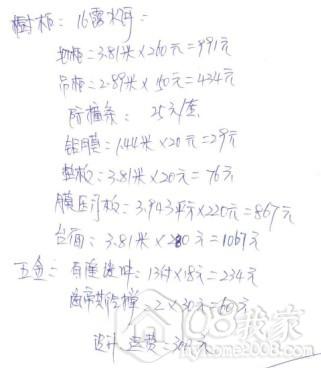 橱柜: 16露水河:
地柜=3.81米×260元=991元
吊柜=2.89米×150元=434元
防撞条: 25元/套
铝膜=1.44米×20元=29元
垫板=3.81米×20元=76元
膜压门板=3.943平方×220元=867元
台面=3.81米×280元=1067元
五金: 百隆 13个×18元=234元
2×30元=60元
设计 运费=
我家
www.2008.com